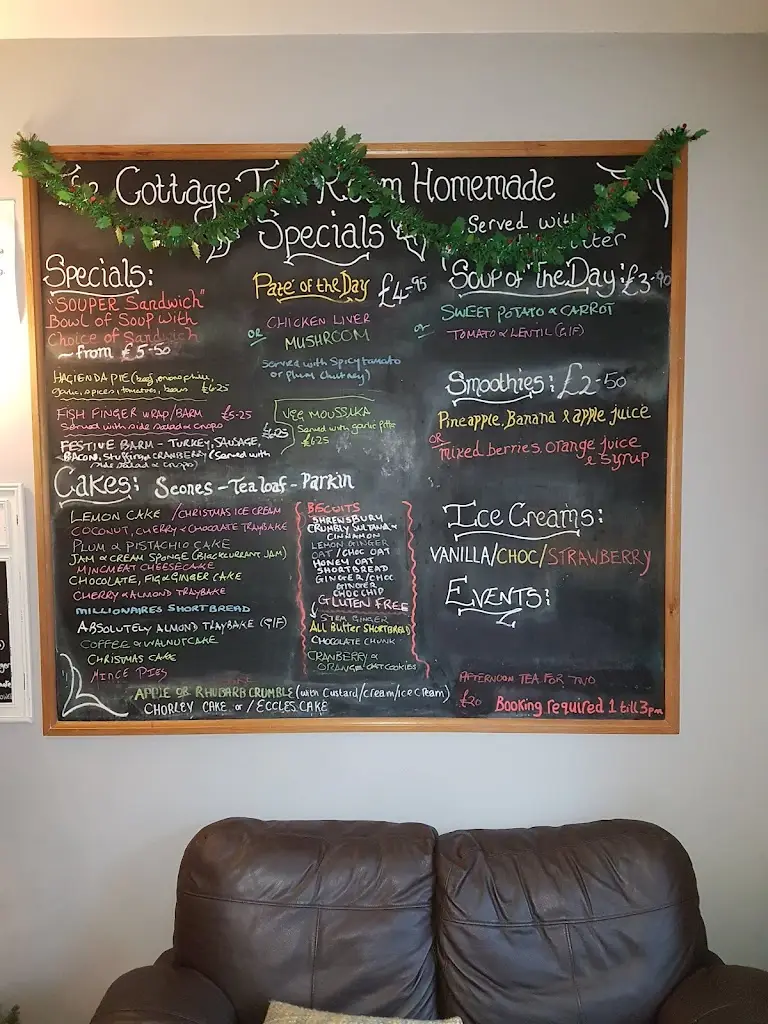 Cottage Tea Room Homemade
Specials
Served with
Specials:
"SOUPER Sandwich"
Bowl of Soup with
Choice of Sandwich
~from £5-50
HACIENDA PIE (beef, onion, chilli,
garlic, spices, tomatoes, beans £6.25
FISH FINGER WRAP/BARM £5-25
Served with side salad & crisps
FESTIVE BARM - TURKEY, SAUSAGE, £6.25
BACON, Stuffing & CRANBERRY (Served with
side salad & crisps)
Pate' of the Day £4-95
CHICKEN LIVER
OR MUSHROOM
Served with Spicy tomato
or Plum Chutney
VEG MOUSSAKA
Served with garlic pitta
£6.25
Soup of The Day: £3-90
SWEET POTATO & CARROT
or TOMATO & LENTIL (G/F)
Smoothies: £2-50
Pineapple, Banana & apple juice
OR mixed berries, orange juice
& Syrup
Cakes: Scones - Tea loaf - Parkin
LEMON CAKE / CHRISTMAS ICE CREAM
COCONUT, CHERRY & CHOCOLATE TRAYBAKE
PLUM & PISTACHIO CAKE
JAM & CREAM SPONGE (BLACKCURRANT JAM)
MINCEMEAT CHEESECAKE
CHOCOLATE, FIG & GINGER CAKE
CHERRY & ALMOND TRAYBAKE
MILLIONAIRES SHORTBREAD
ABSOLUTELY ALMOND TRAYBAKE (G/F)
COFFEE & WALNUT CAKE
CHRISTMAS CAKE
MINCE PIES
APPLE OR RHUBARB CRUMBLE (with Custard/cream/ice cream)
CHORLEY CAKE or / ECCLES CAKE
BISCUITS
SHREWSBURY
CRUMBLY SULTANA &
CINNAMON
LEMON GINGER
OAT / CHOC OAT
HONEY OAT
SHORTBREAD
GINGER / CHOC
GINGER
CHOC CHIP
GLUTEN FREE
STEM GINGER
ALL BUTTER SHORTBREAD
CHOCOLATE CHUNK
CRANBERRY &
ORANGE OAT COOKIES
Ice Creams:
VANILLA/CHOC/STRAWBERRY
EVENTS:
AFTERNOON TEA FOR TWO
£20 Booking required 1 till 3pm